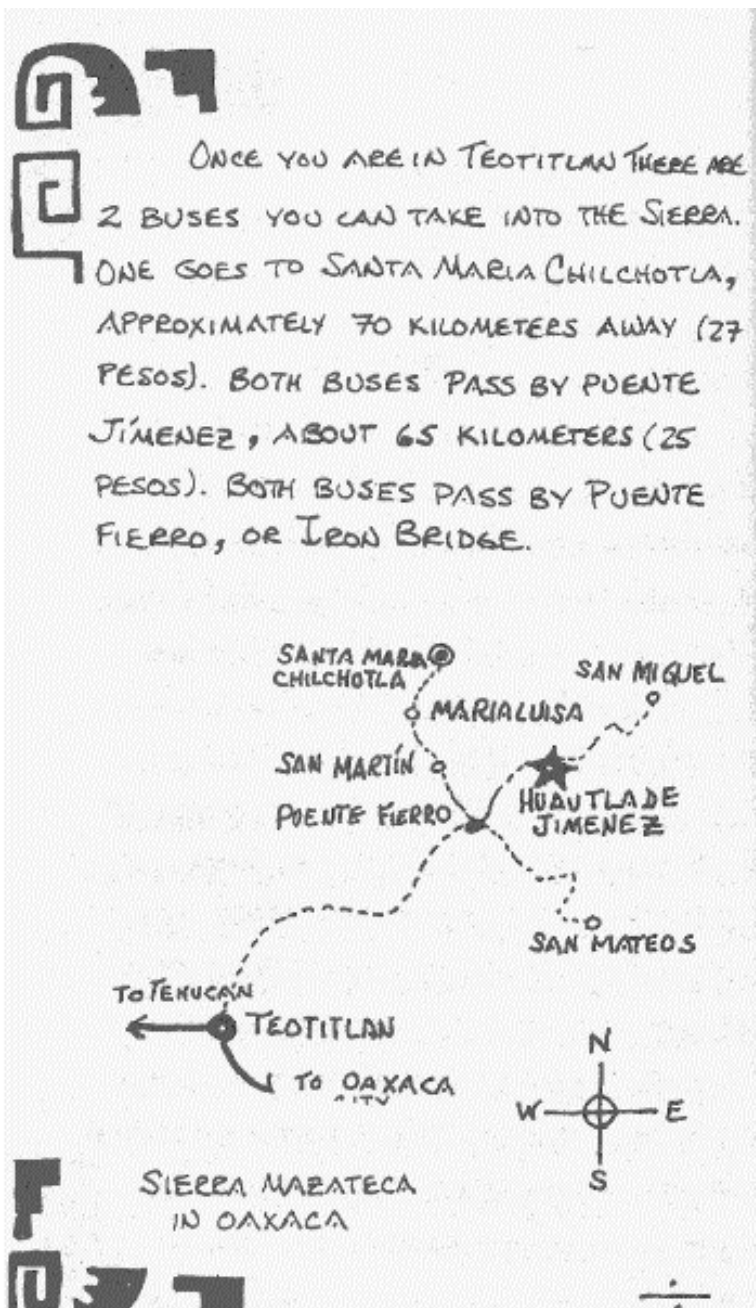 ONCE YOU ARE IN TEOTITLAN THERE ARE
2 BUSES YOU CAN TAKE INTO THE SIERRA.
ONE GOES TO SANTA MARIA CHILCHOTLA,
APPROXIMATELY 70 KILOMETERS AWAY (27
PESOS). BOTH BUSES PASS BY PUENTE
JÍMENEZ, ABOUT 65 KILOMETERS (25
PESOS). BOTH BUSES PASS BY PUENTE
FIERRO, OR IRON BRIDGE.
SANTA MARIA
CHILCHOTLA
SAN MIGUEL
MARIALUISA
SAN MARTÍN
HUAUTLA DE
JIMENEZ
PUENTE FIERRO
SAN MATEOS
TO TEHUCÁN
TEOTITLAN
TO OAXACA
CITY
N
W E
S
SIERRA MAZATECA
IN OAXACA